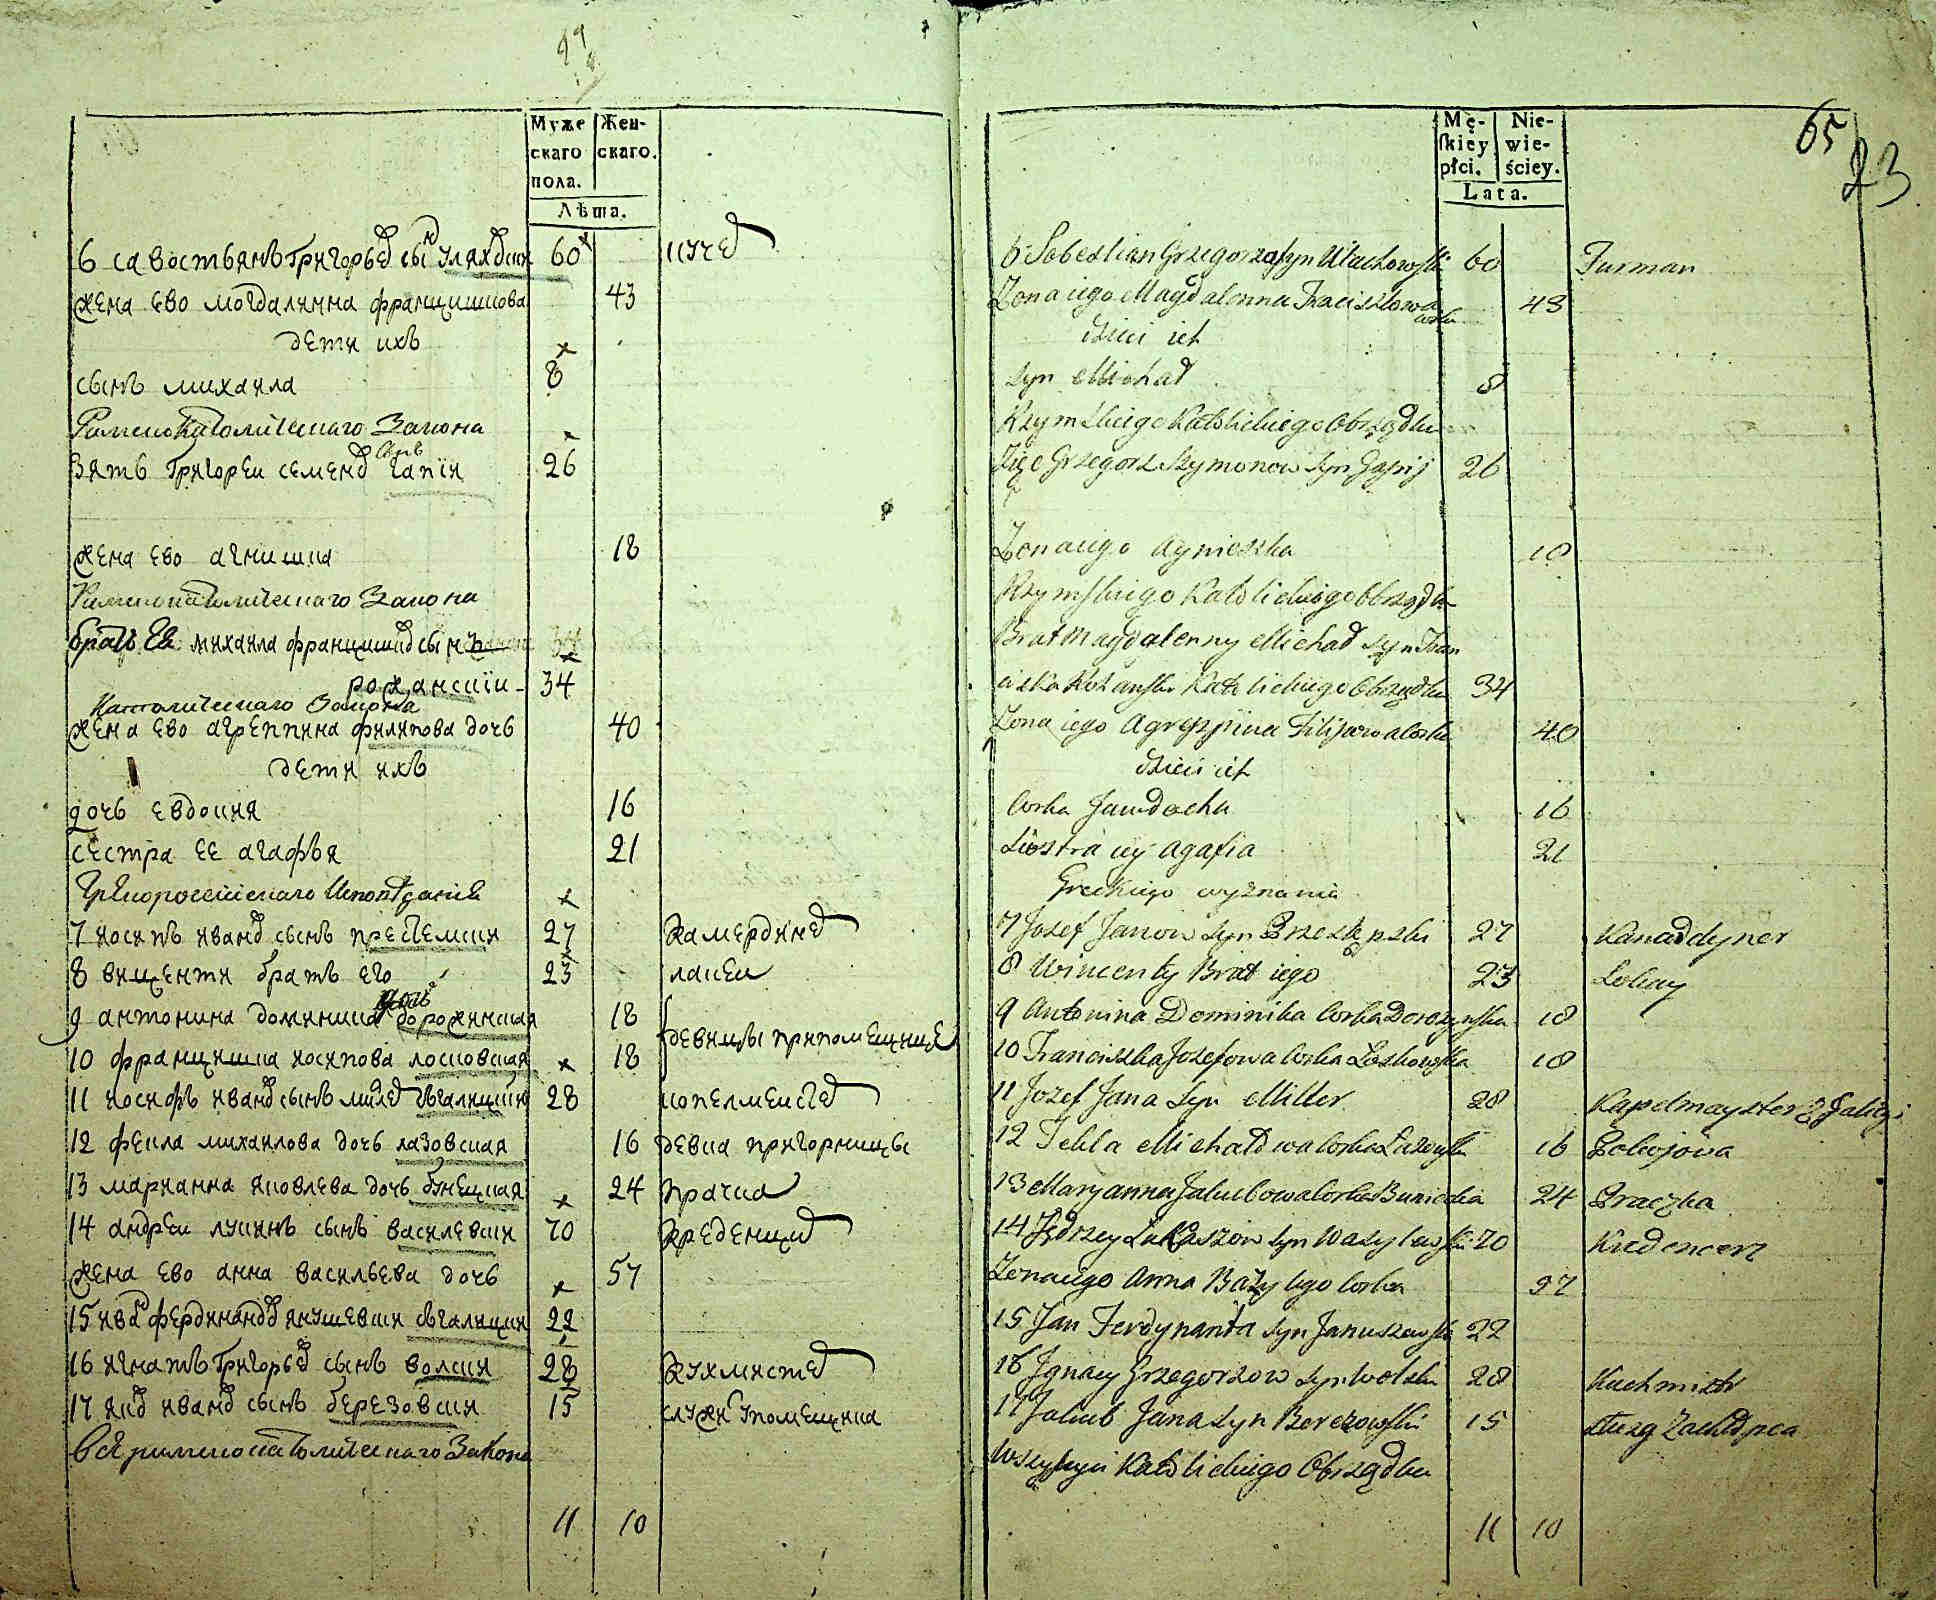 Муже
скаго
пола.
Жен-
скаго.
Лѣта.
6 савостьянъ григорьев сын уляховски 60 кучер
жена ево могдалинна францишкова 43
дети ихъ
сынъ михаила 8
Римско католическаго Закона
зять григореи семенов сынъ гапіи 26
жена ево агнишка 18
Римскокатолическаго Закона
братъ Ея михаила францишков сынъ
рожанскіи 34
Католическаго Закона
жена ево агреппина филипова дочь 40
дети ихъ
дочь евдокия 16
сестра ее агафья 21
Грекороссійскаго Исповеданія
7 иосипъ иванов сынъ 27 камердинер
8 винценти братъ его 23 лакеи
9 антонина доминика дочь дорожинская 18
10 францишка иосипова лосковская 18 девицы при помещице
11 иосифъ иванов сынъ милер 28 копелмеистер
12 фекла михаилова дочь лазовская 16 девка при горницы
13 марианна яковлева дочь бунецкая 24 прачка
14 андреи лукинъ сынъ василевски 70 креденцир
жена ево анна васильева дочь 57
15 иван фердинандов янушевски 22
16 игнатъ григорьев сынъ волски 28 кухмистер
17 яков иванов сынъ березовски 15 служит у помещика
Вся римскокатолическаго Закона
11 10
65
23
Mę-
skiey
płci.
Nie-
wie-
ściey.
Lata.
6 Sobestian Grzegorza syn Ulachowski 60 Furman
Zona iego Magdalenna Franciszkowa corka 43
dzieci ich
syn Michał 8
Rzymskiego Katolickiego Obrządku
Zięć Grzegorz Szymonow syn Gapij 26
Zona iego Agnieszka 18
Rzymskiego Katolickiego Obrządku
Brat Magdalenny Michał syn Fran
ciszka Rożanski Katolickiego Obrządku 34
Zona iego Agreppina Filipowa Corka 40
dzieci ich
Corka Jawdocha 16
Siostra iey Agafia 21
Greckiego wyznania
7 Josef Janow syn 27 Kamaddyner
8 Wincenty Brat iego 23 Lokay
9 Antonina Dominika Corka Dorożynska 18
10 Franciszka Jozefowa Corka Loskowska 18
11 Jozef Jana syn Miller 28 Kapelmayster z Galicyi
12 Tekla Michałowa Corka Łazowska 16 Pokojowa
13 Maryanna Jakubowa Corka Buniecka 24 Praczka
14 Jędrzey Łukaszow syn Wasylewski 70 Kredencerz
Zona iego Anna Bazylego Corka 57
15 Jan Ferdynanda syn Januszewski 22
16 Jgnacy Grzegorzow syn Wolski 28 Kuchmistr
17 Jakub Jana syn Berezowski 15
Wszyscy Katolickiego Obrządku
11 10